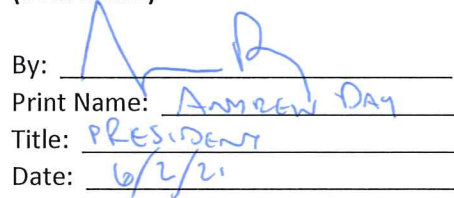 By:
Print Name: ANDREW DAY
Title: PRESIDENT
Date: 6/2/21